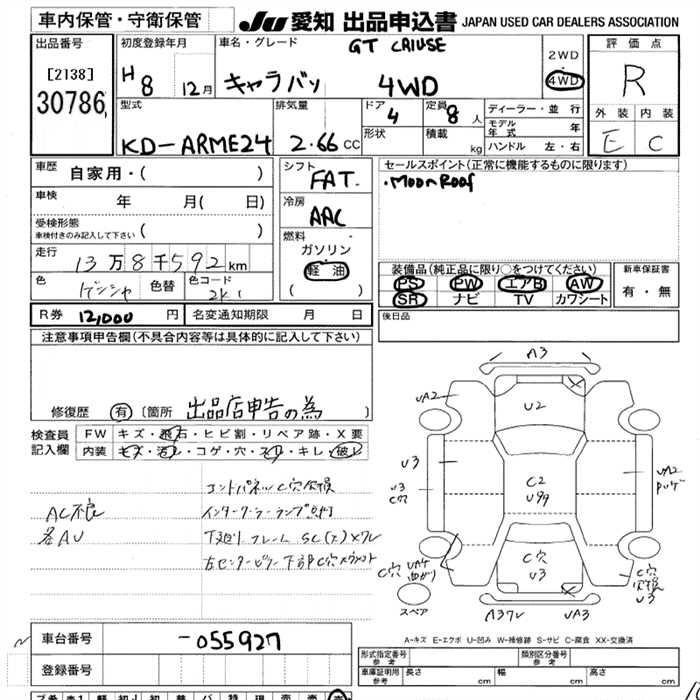 車内保管・守衛保管
JU 愛知 出品申込書 JAPAN USED CAR DEALERS ASSOCIATION
出品番号
[2138]
30786
初度登録年月
H 8 12月
車名・グレード
GT CRIUSE
キャラバン 4WD
2WD
4WD
評価点
R
外装 内装
E C
型式
KD-ARME24
排気量
2.66 CC
ドア
4
形状
定員
8 人
積載 kg
ディーラー・並 行
モデル年式 年
ハンドル 左・右
車歴
自家用・( )
車検
年 月( 日)
受検形態
車検付きのみ記入して下さい ( )
走行
13万8千592km
色
ゲンシャ
色替
色コード
2K1
シフト
FAT
冷房
AAC
燃料
ガソリン・
軽油
( )
セールスポイント(正常に機能するものに限ります)
・Moon Roof
装備品(純正品に限り○をつけてください)
PS PW エアB AW
SR ナビ TV カワシート
新車保証書
有・無
R券 12,000 円
名変通知期限 月 日
後日品
注意事項申告欄(不具合内容等は具体的に記入して下さい)
修復歴 有 [箇所 出品店申告の為 ]
検査員
記入欄
FW キズ・飛石・ヒビ割・リペア跡・X要
内装 キズ・汚レ・コゲ・穴・スレ・キレ・破レ
コントパネルC穴欠損
AC不良
インタークーラーランプ点灯
各AU
下廻りフレーム SC(大)Xワレ
右センターピラー下部C穴
A3
UA2
U2
U3
U3
C穴
C2
U99
UA2
C穴
U3
C穴
曲がり
C穴
欠損
U3
スペア
A3ワレ
UA3
A-キズ E-エクボ U-凹み W-補修跡 S-サビ C-腐食 XX-交換済
車台番号
-055927
登録番号
形式指定番号
参考
類別区分番号
参考
車庫証明用
参考
長さ cm
幅 cm
高さ cm